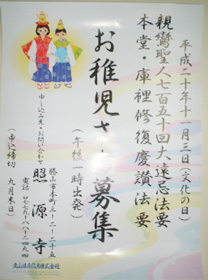 平成二十年十一月三日(文化の日)
親鸞聖人七百五十回大遠忌法要
本堂・庫裡修復慶讃法要
お稚児さん募集
(午後一時出発)
申し込み先・お問い合わせ
勝山市本町
照源寺
電話
(申込締切 九月末日)